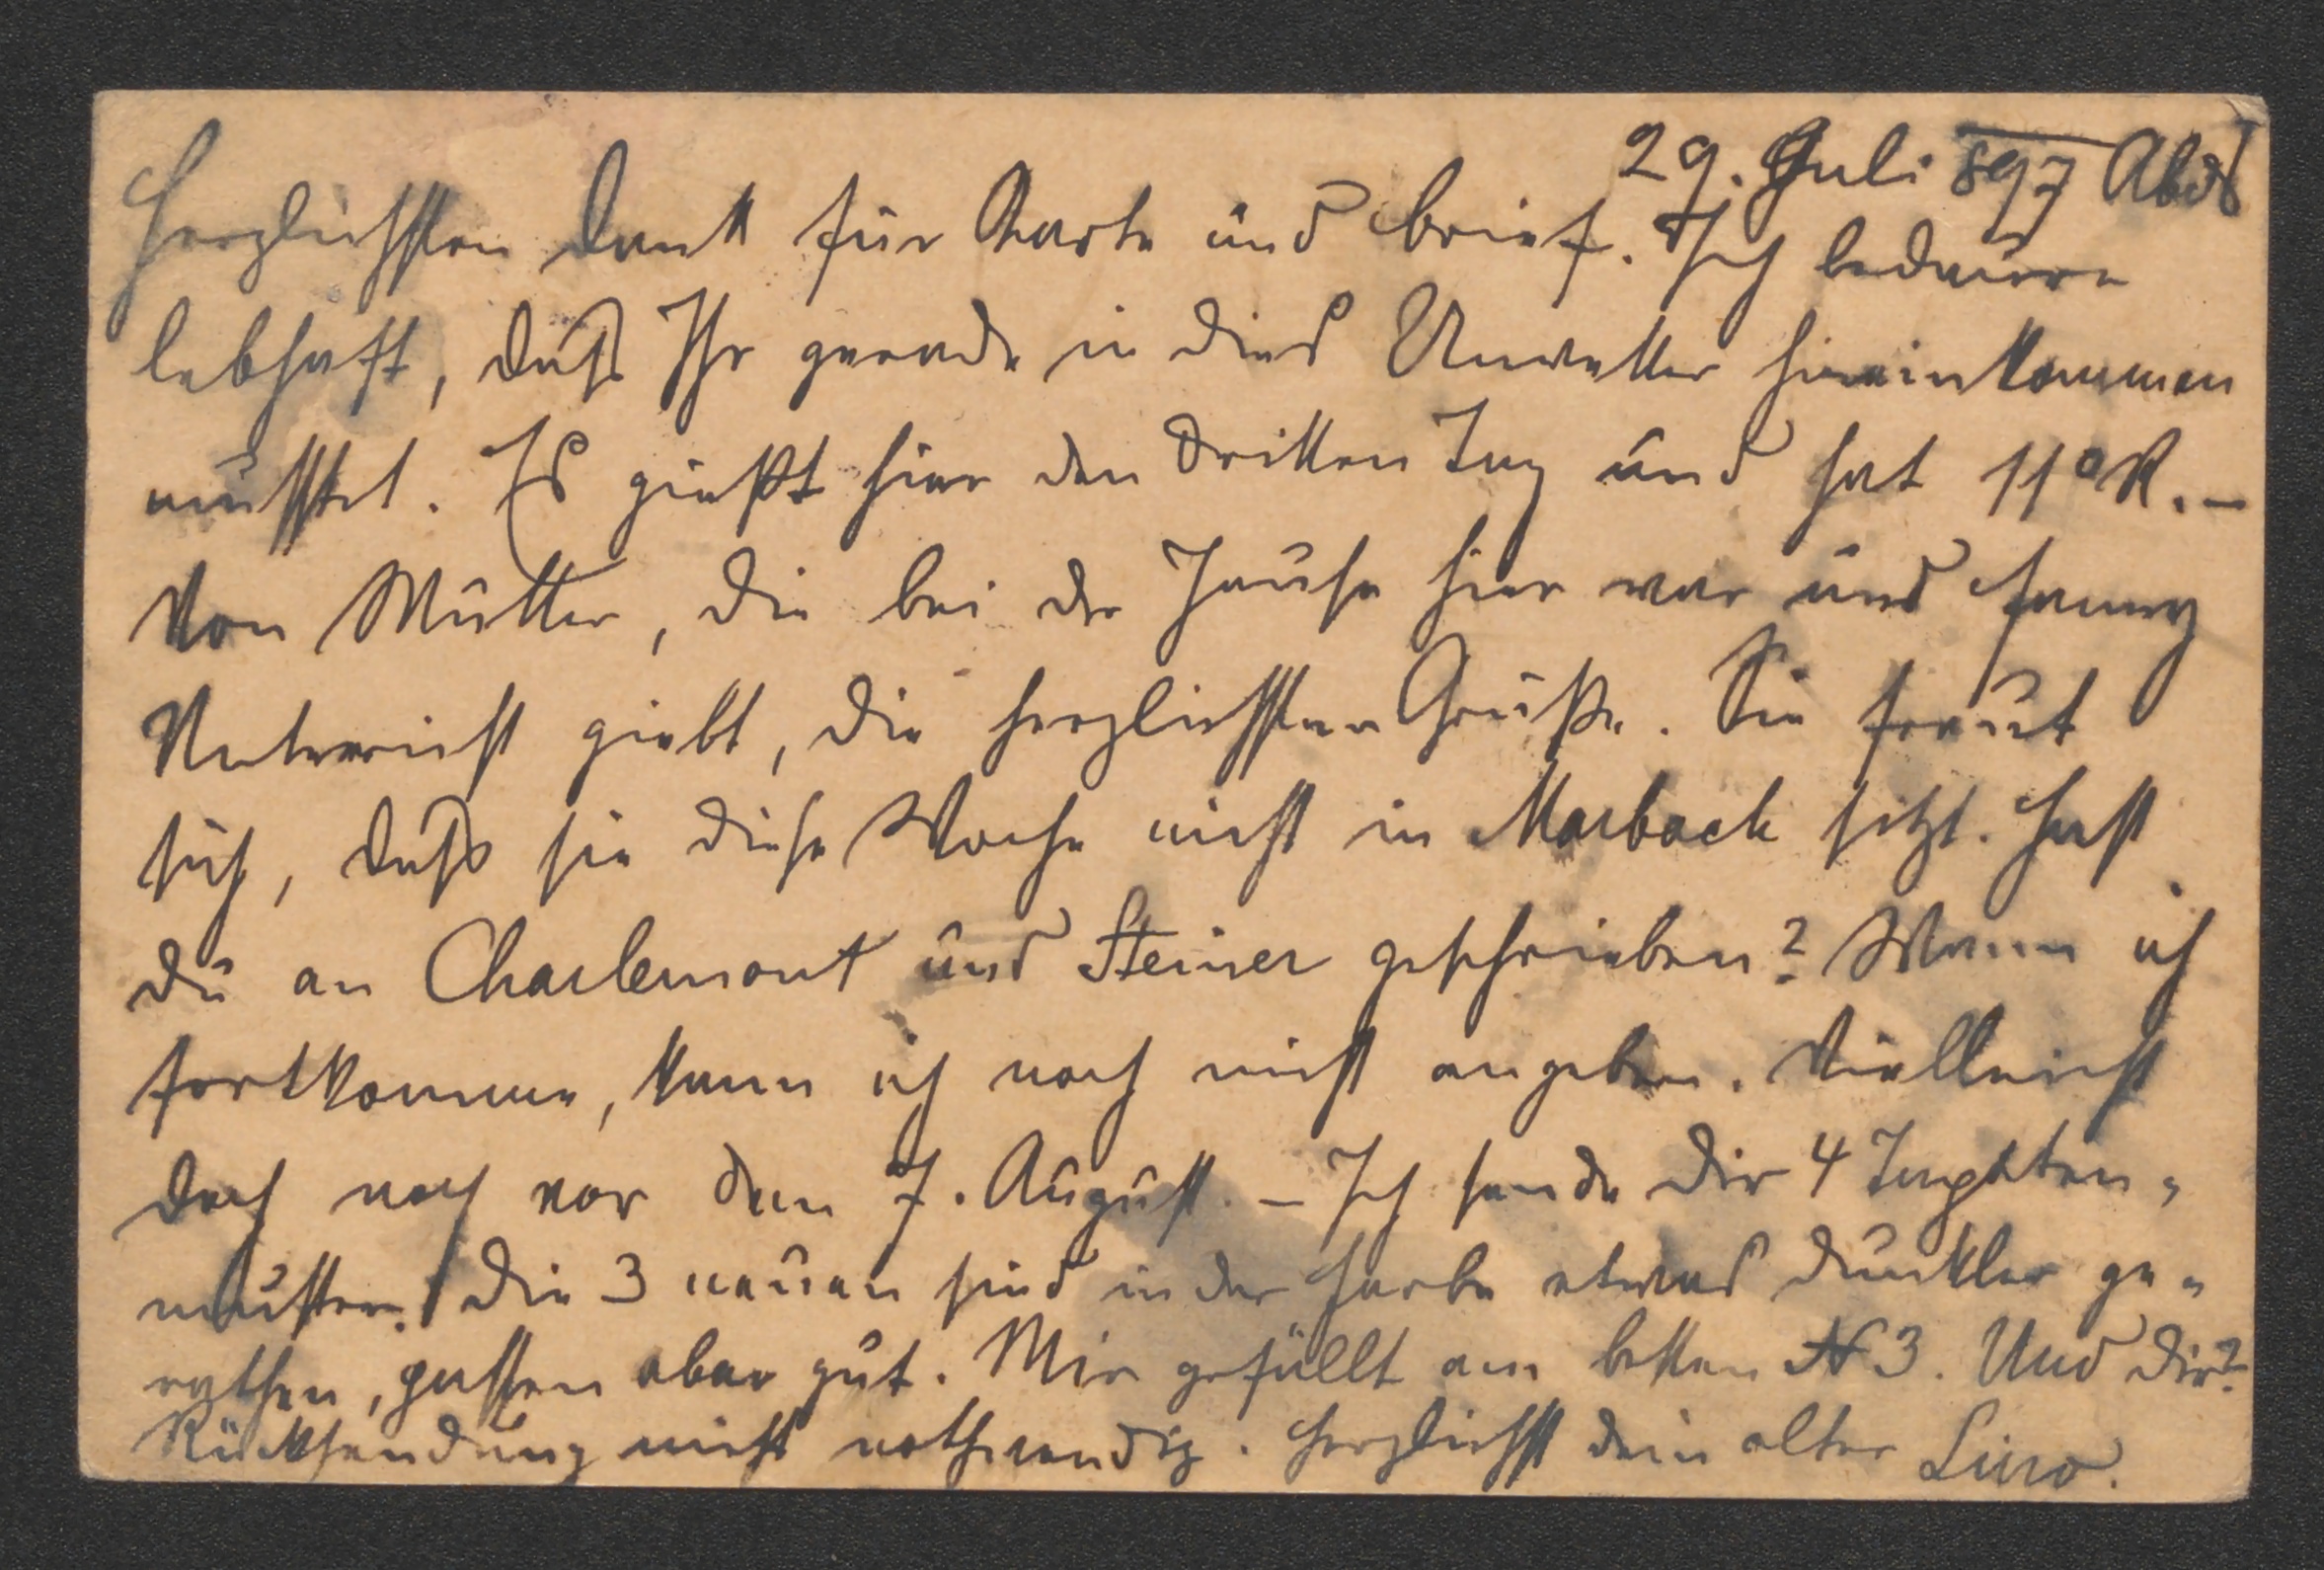 29. Juli 897 Abds
Herzlichsten Dank für Karte und Brief. Ich bedaure
lebhaft, daß Ihr gerade in dies Unwetter hineinkommen
mußtet. Es gießt hier den dritten Tag und hat 11° R. –
Von Mutter, die bei der Jause hier war und Fanny
Unterricht giebt, die herzlichsten Grüße. Sie freut
sich, daß sie diese Woche nicht in Marbach sitzt. Hast
du an Charlemont und Steiner geschrieben? Wann ich
fortkomme, kann ich noch nicht angeben. Vielleicht
doch noch vor dem 7. August. – Ich sende Dir 4
muster. Die 3 neuen sind in der Farbe etwas dunkler ge-
rathen, passen aber gut. Mir gefällt am besten N 3. Und Dir?
Rücksendung nicht nothwendig. Herzlichst dein alter Lino.